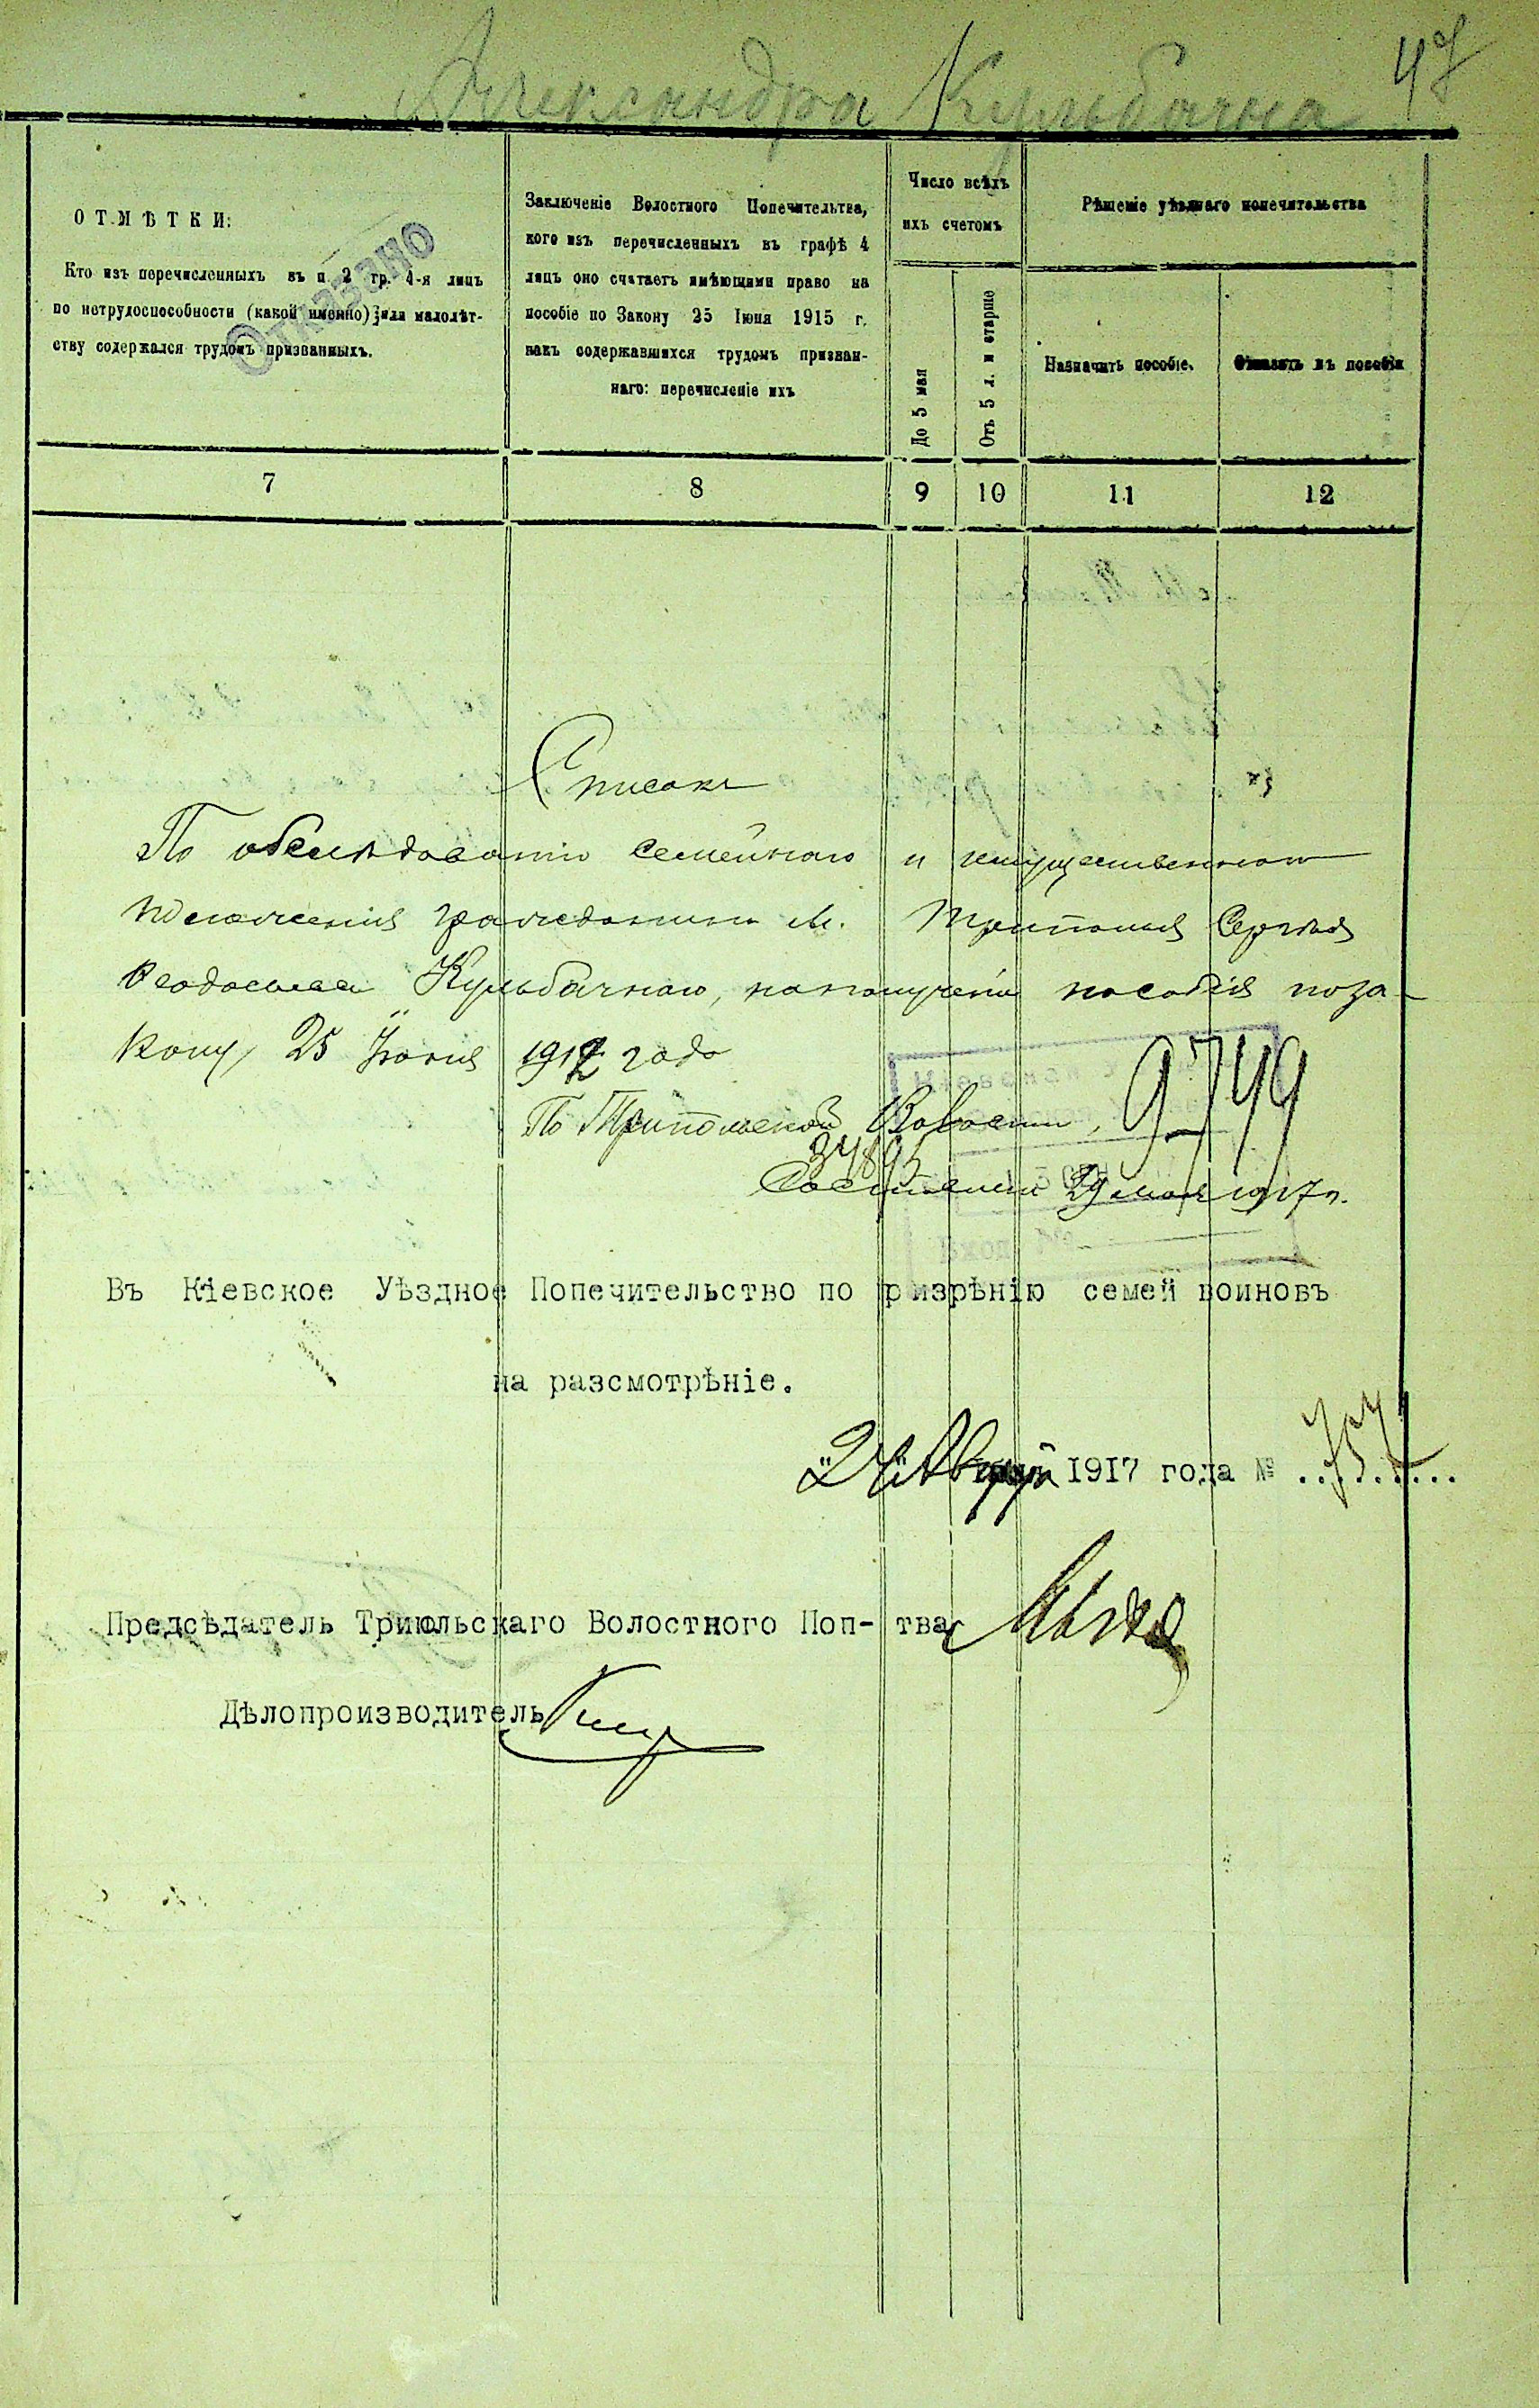 Александра Кульбачна
ОТМѢТКИ:
Кто изъ перечисленныхъ въ п. 2 гр. 4-я лицъ
по нетрудоспособности (какой именно) или малолѣт-
ству содержался трудомъ призванныхъ.
Отказано
Заключеніе Волостного Попечительтва,
кого изъ перечисленныхъ въ графѣ 4
лицъ оно считаетъ имѣющими право на
пособіе по Закону 25 Іюня 1915 г.
какъ содержавшихся трудомъ призван-
наго: перечисленіе ихъ
Число всѣхъ
ихъ счетомъ
До 5 мая
Отъ 5 л. и старше
Рѣшеніе уѣзднаго попечительства
Назначить пособіе.
Отказать въ пособіи
7 8 9 10 11 12
Списокъ
По обслѣдованію семейнаго и имущественнаго
положенія гражданина м. Триполья Сергѣя
Кульбачнаго, на полученіе пособія по за-
кону 25 Іюня 1912 года
По Трипольской Волости,
9749
34895
Составленъ 29 мая 1917 г.
Въ Кіевское Уѣздное Попечительство по призрѣнію семей воиновъ
на разсмотрѣніе.
1917 года №
Предсѣдатель Трипольскаго Волостного Поп-тва
Дѣлопроизводитель